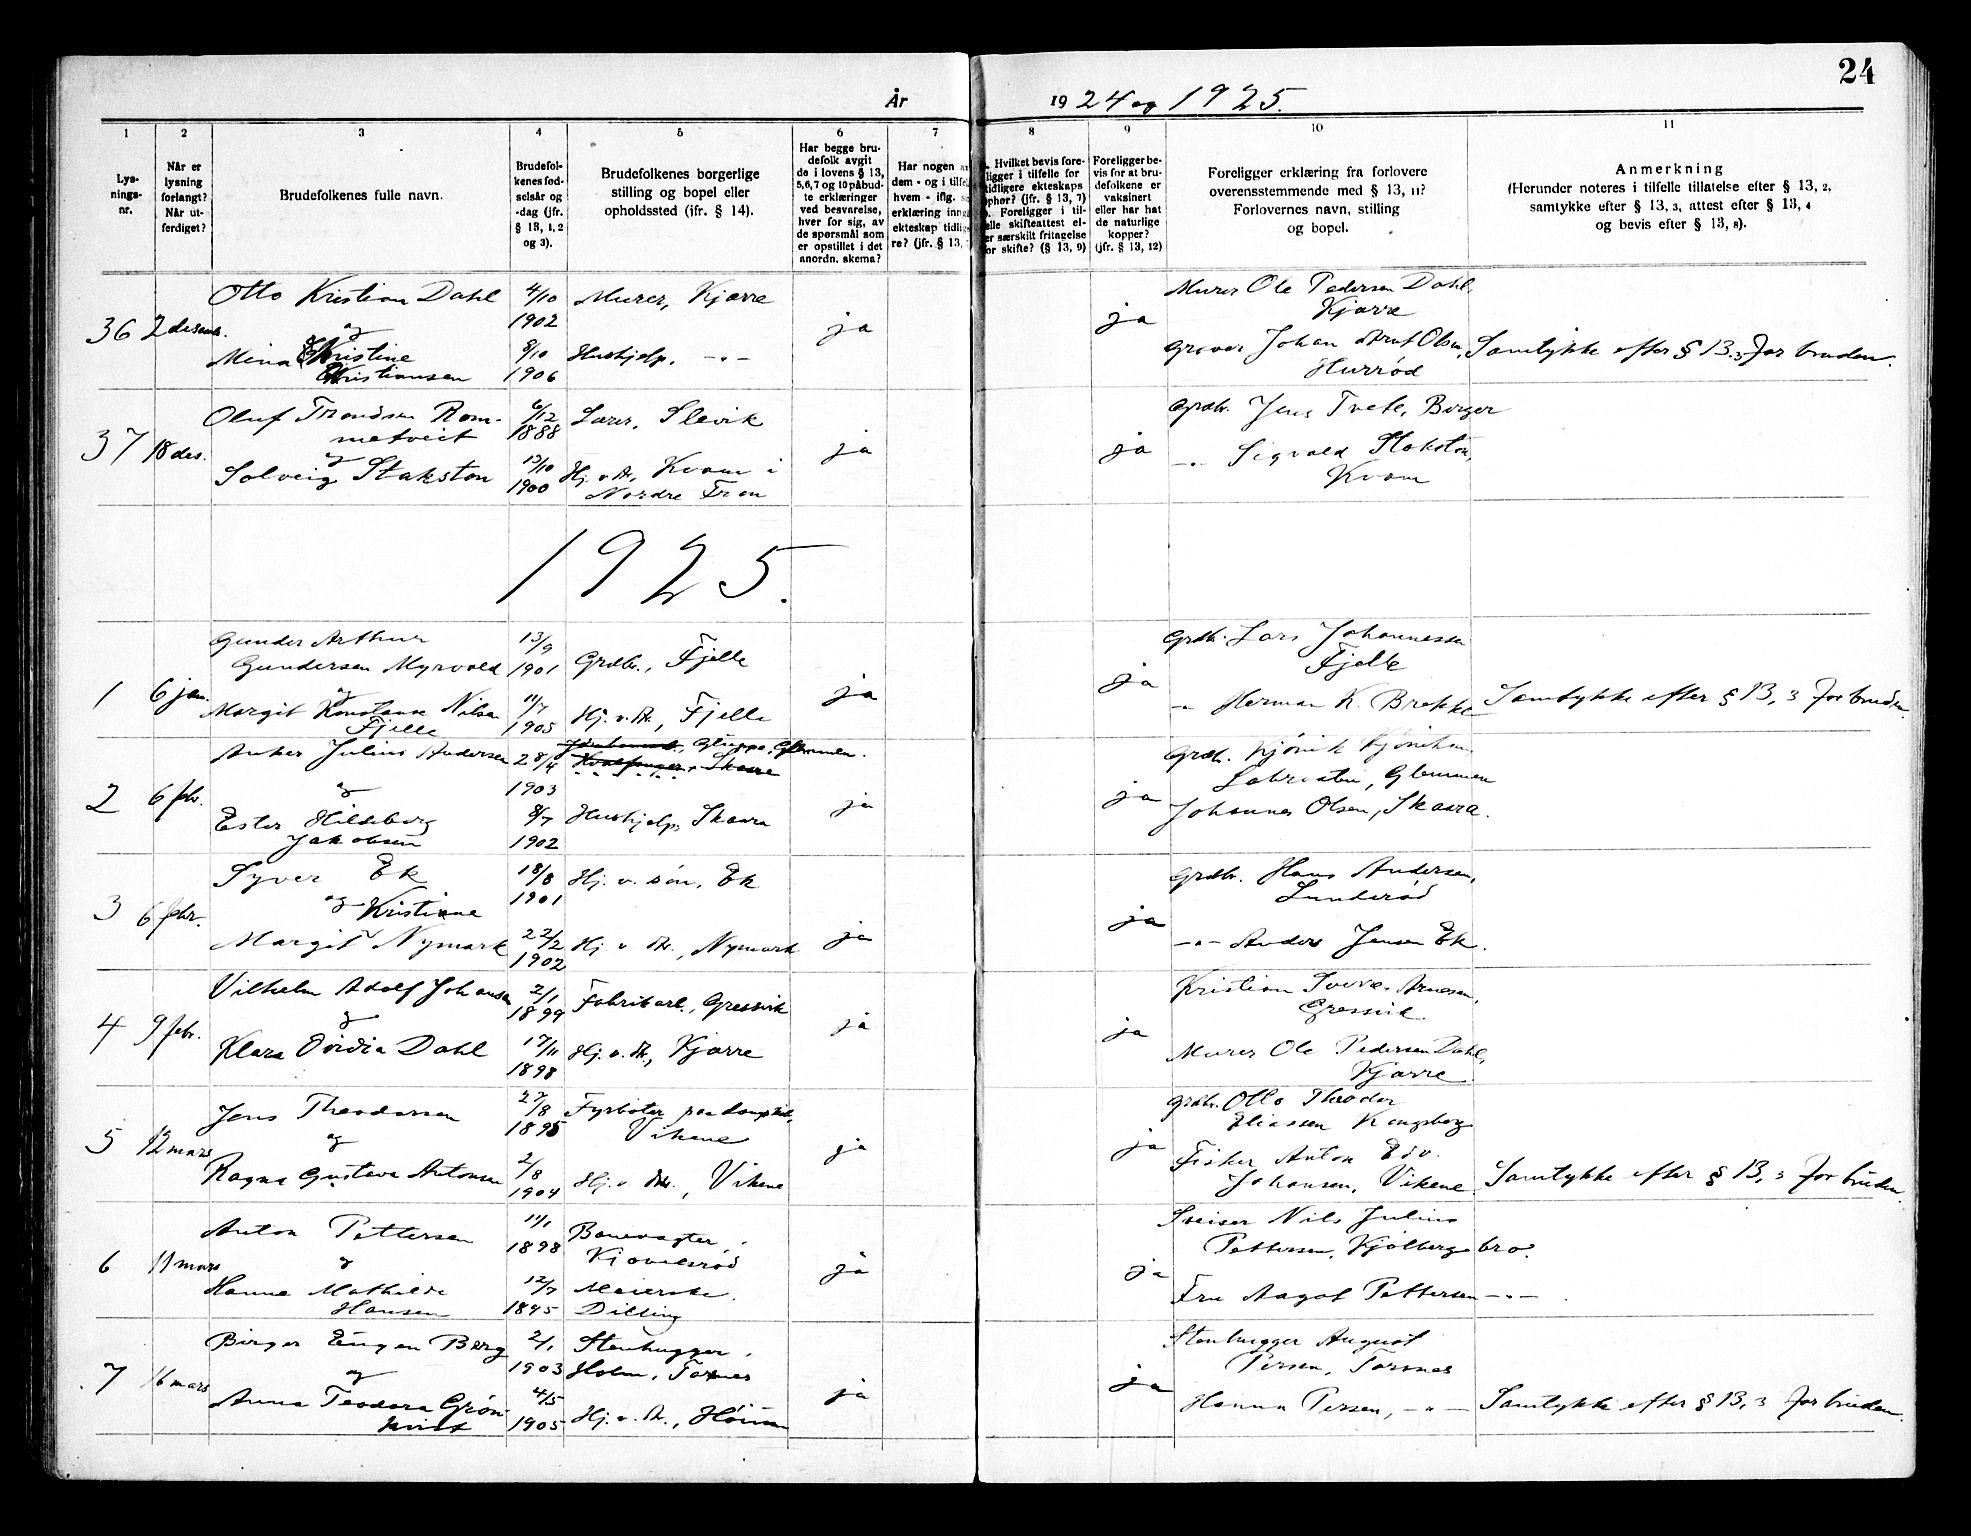 24
År 1924 og 1925.
1 2 3 4 5 6 7 8 9 10 11
Lys-
nings-
nr.
Når er
lysning
forlangt?
Når ut-
ferdiget?
Brudefolkenes fulle navn.
Brudefol-
kenes fød-
selsår og
-dag (jfr.
§ 13, 1, 2
og 3).
Brudefolkenes borgerlige
stilling og bopel eller
opholdssted (ifr. § 14).
Har begge bru-
defolk avgit
de i lovens § 13,
5,6,7 og 10 påbud-
te erklæringer
ved besvarelse,
hver for sig, av
de spørsmål som
er opstillet i det
anordn. skema?
Har nogen av
dem - og i tilfel
hvem - iflg. s
erklæring inng
ekteskap tidlig
re? (jfr. § 13,
. Hvilket bevis fore-
ligger i tilfelle for
tidligere ekteskaps
ophør? (jfr. § 13, 7)
. Foreligger i til-
elle skifteattest el-
er særskilt fritagelse
or skifte? (§ 13, 9)
Foreligger be-
vis for at bru-
defolkene er
vaksinert
eller har hat
de naturlige
kopper?
(jfr. § 13, 12)
Foreligger erklæring fra forlovere
overensstemmende med § 13, 11?
Forlovernes navn, stilling
og bopel.
Anmerkning
(Herunder noteres i tilfelle tillatelse efter § 13, 2,
samtykke efter § 13, 3, attest efter § 13, 4
og bevis efter § 13, 8).
36 2 desemb.
Otto Kristian Dahl 4/10 1902 Murer, Kjærre
og
Mina Kristine
Kristiansen 8/10 1906 Hushjelp, -"-
ja ja
Murer Ole Pedersen Dahl,
Kjærre
Grover Johan Arnt Olsen,
Hurrød
Samtykke efter § 13.3 for bruden.
37 18 des.
Oluf Trondsen Rom-
metveit 6/12 1888 Lærer, Slevik
og
Solveig Stakston 13/10 1900 Hj. v. do., Kvam i
Nordre Fron
ja ja
Grdbr. Jens Tvete, Borger
-"- Sigvald Stakston,
Kvam
1925.
1 6 jan.
Gunder Arthur
Gundersen Myrvold 13/9 1901 Grdbr., Fjelle
og
Margit Konstanse Nilsen
Fjelle 11/7 1905 Hj. v. do., Fjelle
ja ja
Grdbr. Lars Johannessen
Fjelle
-"- Herman K. Brekke
Samtykke efter § 13, 3 for bruden.
2 6 febr.
Anker Julius Andersen 28/4 1903
Gluppe, Glemmen.
Skaare
og
Ester Hildeborg
Jakobsen 8/7 1902 Hushjelp, Skaara
ja ja
Grdbr. Kjønik Kjøniksen
Labraaten, Glemmen
Johannes Olsen, Skaara.
3 6 febr.
Syver Ek 18/8 1901 Hj. v. søn, Ek
og Kristiane
Margit Nymark 22/2 1902 Hj. v. do., Nymark
ja ja
Grdbr. Hans Andersen,
Lunderød
-"- Anders Jensen Ek.
4 9 febr.
Vilhelm Adolf Johansen 2/1 1899 Fabrikarb., Gressvik
og
Klara Ovidia Dahl 17/11 1898 Hj. v. do., Kjærre
ja ja
Kristian Arnesen,
Gressvik.
Murer Ole Pedersen Dahl,
Kjærre
5 12 mars
Jens Theodorsen 27/8 1895 Fyrbøter paa dampskib,
Vikene
og
Ragna Gustava Antonsen 2/8 1904 Hj. v. do., Vikene
ja ja
Grdbr. Otto Theodor
Eliassen Kongsberg
Fisker Anton Edv.
Johansen, Vikene.
Samtykke efter § 13, 3 for bruden.
6 11 mars
Anton Pettersen 11/1 1898 Banevogter,
og
Hanna Mathilde
Hansen 12/7 1895 Meierske,
Dilling
ja ja
Sveiser Nils Julius
Pettersen, Kjølbergsbro.
Fru Aagot Pettersen -"-
7 16 mars
Birger Eugen Berg 2/1 1903 Stenhugger,
Holm, Torsnes
og
Anna Teodora Grøn-
kvist 4/5 1905 Hj. v. do., Høium
ja ja
Stenhugger August
Persen, Torsnes
Hanna Persen, -"-
Samtykke efter § 13, 3 for bruden.